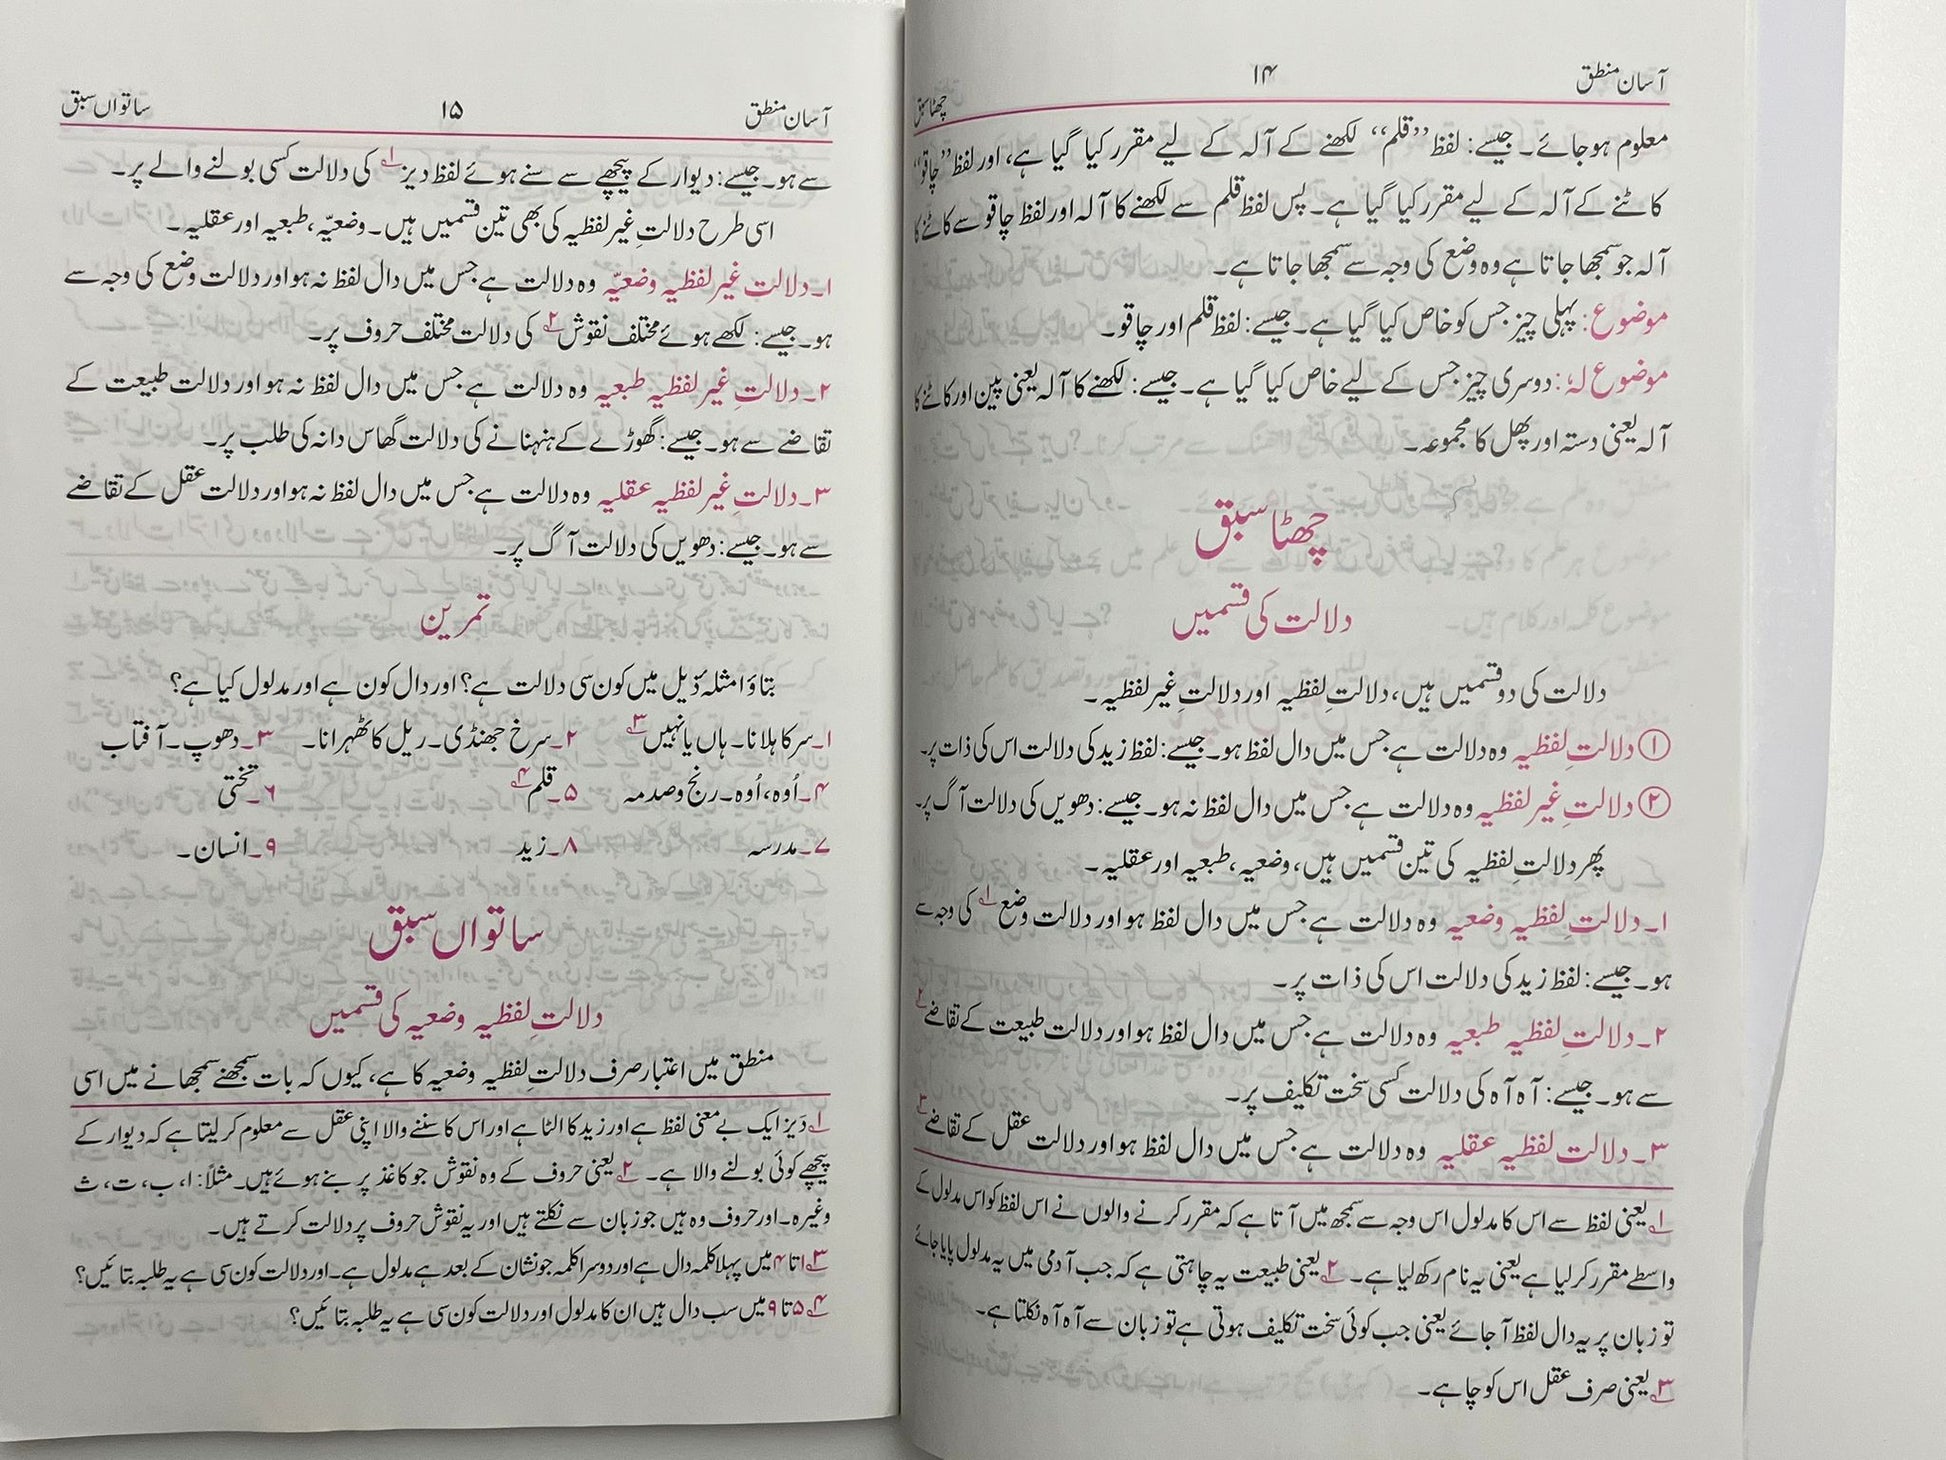 آسان منطق ۱۴ چھٹا سبق
معلوم ہوجائے۔ جیسے: لفظ ’’قلم‘‘ لکھنے کے آلہ کے لیے مقرر کیا گیا ہے، اور لفظ ’’چاقو‘‘
کاٹنے کے آلہ کے لیے مقرر کیا گیا ہے۔ پس لفظ قلم سے لکھنے کا آلہ اور لفظ چاقو سے کاٹنے کا
آلہ جو سمجھا جاتا ہے وہ وضع کی وجہ سے سمجھا جاتا ہے۔
موضوع: پہلی چیز جس کو خاص کیا گیا ہے۔ جیسے: لفظ قلم اور چاقو۔
موضوع لہٗ: دوسری چیز جس کے لیے خاص کیا گیا ہے۔ جیسے: لکھنے کا آلہ یعنی پین اور کاٹنے کا
آلہ یعنی دستہ اور پھل کا مجموعہ۔
چھٹا سبق
دلالت کی قسمیں
دلالت کی دو قسمیں ہیں، دلالتِ لفظیہ اور دلالتِ غیر لفظیہ۔
① دلالتِ لفظیہ وہ دلالت ہے جس میں دال لفظ ہو۔ جیسے: لفظ زید کی دلالت اس کی ذات پر۔
② دلالتِ غیر لفظیہ وہ دلالت ہے جس میں دال لفظ نہ ہو۔ جیسے: دھویں کی دلالت آگ پر۔
پھر دلالتِ لفظیہ کی تین قسمیں ہیں، وضعیہ، طبعیہ اور عقلیہ۔
۱۔ دلالتِ لفظیہ وضعیہ وہ دلالت ہے جس میں دال لفظ ہو اور دلالت وضع ۱؎ کی وجہ سے
ہو۔ جیسے: لفظ زید کی دلالت اس کی ذات پر۔
۲۔ دلالتِ لفظیہ طبعیہ وہ دلالت ہے جس میں دال لفظ ہو اور دلالت طبیعت کے تقاضے ۲؎
سے ہو۔ جیسے: آہ آہ کی دلالت کسی سخت تکلیف پر۔
۳۔ دلالت لفظیہ عقلیہ وہ دلالت ہے جس میں دال لفظ ہو اور دلالت عقل کے تقاضے ۳؎
۱؎ یعنی لفظ سے اس کا مدلول اس وجہ سے سمجھ میں آتا ہے کہ مقرر کرنے والوں نے اس لفظ کو اس مدلول کے
واسطے مقرر کر لیا ہے یعنی یہ نام رکھ لیا ہے۔ ۲؎ یعنی طبیعت یہ چاہتی ہے کہ جب آدمی میں یہ مدلول پایا جائے
تو زبان پر یہ دال لفظ آجائے یعنی جب کوئی سخت تکلیف ہوتی ہے تو زبان سے آہ آہ نکلتا ہے۔
۳؎ یعنی صرف عقل اس کو چاہے۔
آسان منطق ۱۵ ساتواں سبق
سے ہو۔ جیسے: دیوار کے پیچھے سے سنے ہوئے لفظ دیز ۱؎ کی دلالت کسی بولنے والے پر۔
اسی طرح دلالتِ غیر لفظیہ کی بھی تین قسمیں ہیں۔ وضعیّہ، طبعیہ اور عقلیہ۔
۱۔ دلالت غیر لفظیہ وضعیّہ وہ دلالت ہے جس میں دال لفظ نہ ہو اور دلالت وضع کی وجہ سے
ہو۔ جیسے: لکھے ہوئے مختلف نقوش ۲؎ کی دلالت مختلف حروف پر۔
۲۔ دلالتِ غیر لفظیہ طبعیہ وہ دلالت ہے جس میں دال لفظ نہ ہو اور دلالت طبیعت کے
تقاضے سے ہو۔ جیسے: گھوڑے کے ہنہنانے کی دلالت گھاس دانہ کی طلب پر۔
۳۔ دلالتِ غیر لفظیہ عقلیہ وہ دلالت ہے جس میں دال لفظ نہ ہو اور دلالت عقل کے تقاضے
سے ہو۔ جیسے: دھویں کی دلالت آگ پر۔
تمرین
بتاؤ امثلہ ذیل میں کون سی دلالت ہے؟ اور دال کون ہے اور مدلول کیا ہے؟
۱۔ سر کا ہلانا۔ ہاں یا نہیں ۳؎ ۲۔ سرخ جھنڈی۔ ریل کا ٹھہرانا۔ ۳۔ دھوپ۔ آفتاب
۴۔ اُوہ، اُوہ۔ رنج و صدمہ ۵۔ قلم ۴؎ ۶۔ تختی
۷۔ مدرسہ ۸۔ زید ۹۔ انسان۔
ساتواں سبق
دلالتِ لفظیہ وضعیہ کی قسمیں
منطق میں اعتبار صرف دلالتِ لفظیہ وضعیہ کا ہے، کیوں کہ بات سمجھنے سمجھانے میں اسی
۱؎ دَیز ایک بے معنی لفظ ہے اور زید کا الٹا ہے اور اس کا سننے والا اپنی عقل سے معلوم کر لیتا ہے کہ دیوار کے
پیچھے کوئی بولنے والا ہے۔ ۲؎ یعنی حروف کے وہ نقوش جو کاغذ پر بنے ہوئے ہیں۔ مثلاً: ا، ب، ت، ث
وغیرہ۔ اور حروف وہ ہیں جو زبان سے نکلتے ہیں اور یہ نقوش حروف پر دلالت کرتے ہیں۔
۳؎ ۱ تا ۴ میں پہلا کلمہ دال ہے اور دوسرا کلمہ جو نشان کے بعد ہے مدلول ہے۔ اور دلالت کون سی ہے یہ طلبہ بتائیں؟
۴؎ ۵ تا ۹ میں سب دال ہیں ان کا مدلول اور دلالت کون سی ہے یہ طلبہ بتائیں؟